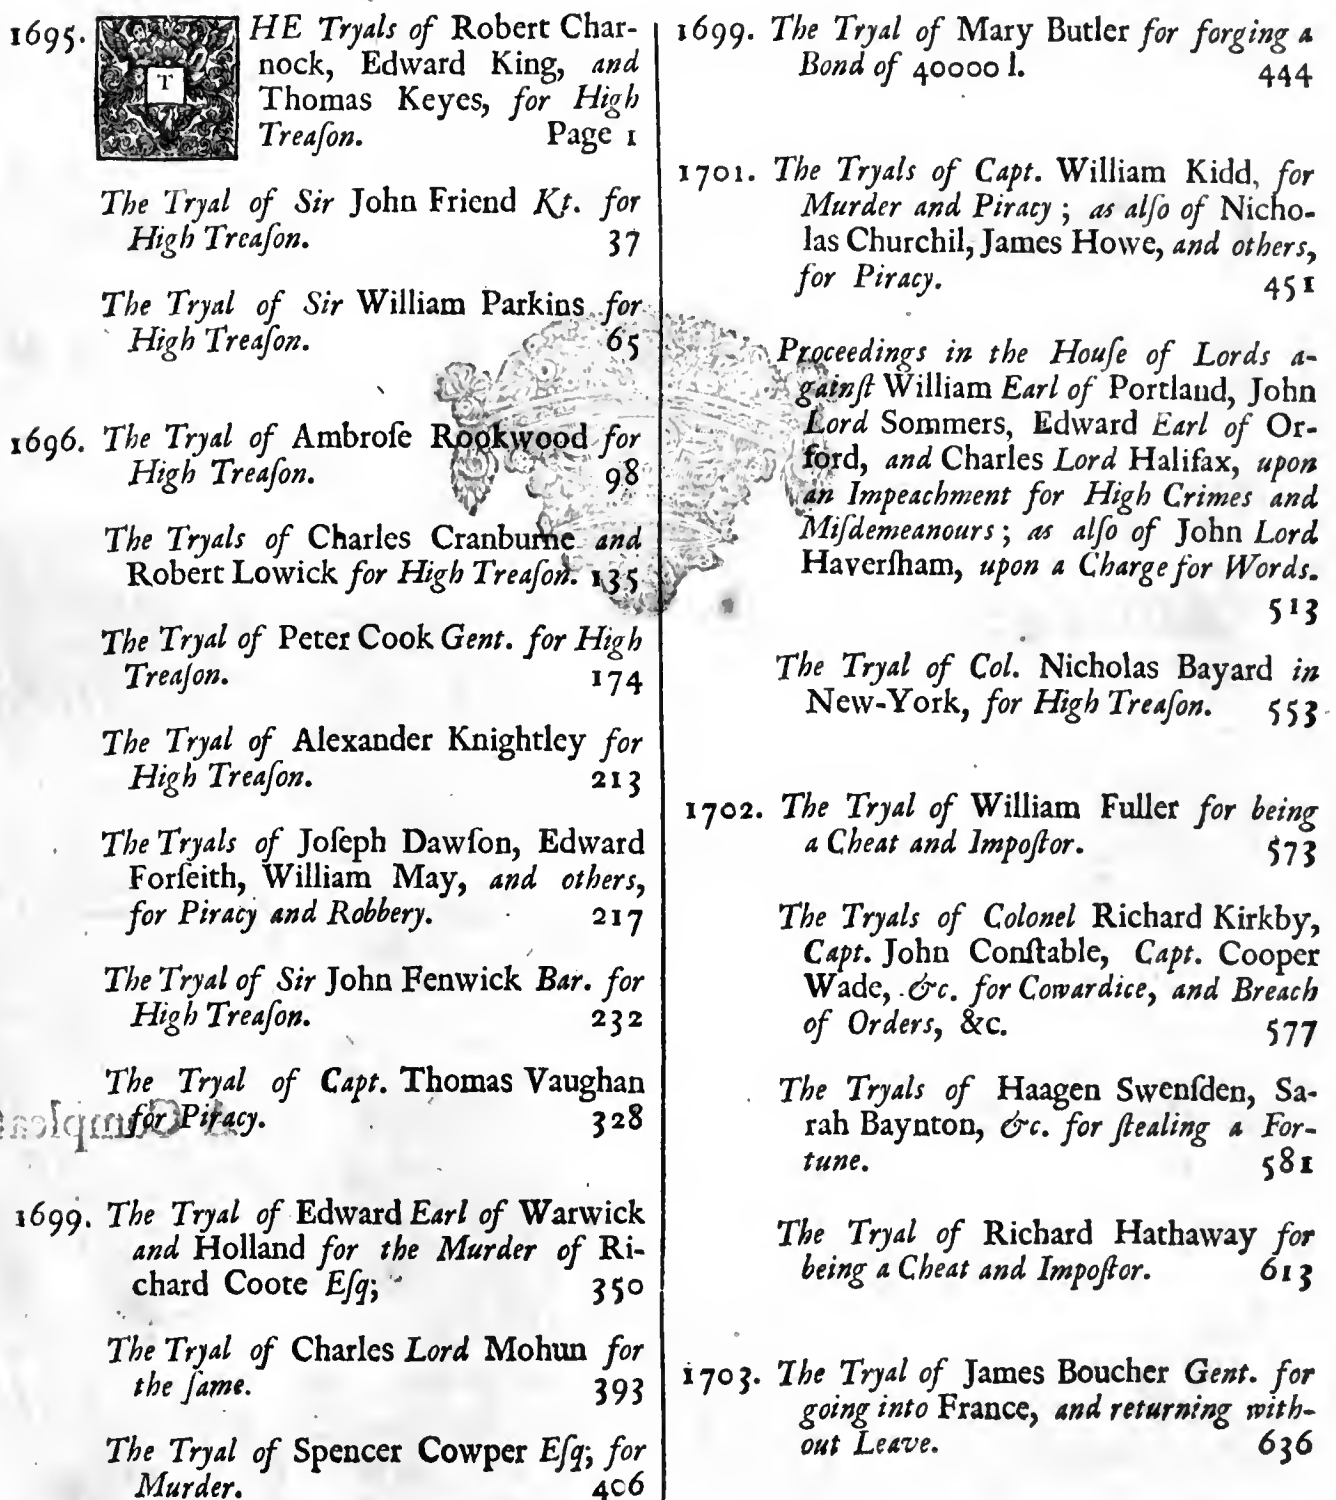 1695. THE Tryals of Robert Char-
nock, Edward King, and
Thomas Keyes, for High
Treaſon. Page 1
The Tryal of Sir John Friend Kt. for
High Treaſon. 37
The Tryal of Sir William Parkins for
High Treaſon. 65
1696. The Tryal of Ambroſe Rookwood for
High Treaſon. 98
The Tryals of Charles Cranburne and
Robert Lowick for High Treaſon. 135
The Tryal of Peter Cook Gent. for High
Treaſon. 174
The Tryal of Alexander Knightley for
High Treaſon. 213
The Tryals of Joſeph Dawſon, Edward
Forſeith, William May, and others,
for Piracy and Robbery. 217
The Tryal of Sir John Fenwick Bar. for
High Treaſon. 232
The Tryal of Capt. Thomas Vaughan
for Piracy. 328
1699. The Tryal of Edward Earl of Warwick
and Holland for the Murder of Ri-
chard Coote Eſq; 350
The Tryal of Charles Lord Mohun for
the ſame. 393
The Tryal of Spencer Cowper Eſq; for
Murder. 406
1699. The Tryal of Mary Butler for forging a
Bond of 40000 l. 444
1701. The Tryals of Capt. William Kidd, for
Murder and Piracy; as alſo of Nicho-
las Churchil, James Howe, and others,
for Piracy. 451
Proceedings in the Houſe of Lords a-
gainſt William Earl of Portland, John
Lord Sommers, Edward Earl of Or-
ford, and Charles Lord Halifax, upon
an Impeachment for High Crimes and
Miſdemeanours; as alſo of John Lord
Haverſham, upon a Charge for Words.
513
The Tryal of Col. Nicholas Bayard in
New-York, for High Treaſon. 553
1702. The Tryal of William Fuller for being
a Cheat and Impoſtor. 573
The Tryals of Colonel Richard Kirkby,
Capt. John Conſtable, Capt. Cooper
Wade, &c. for Cowardice, and Breach
of Orders, &c. 577
The Tryals of Haagen Swenſden, Sa-
rah Baynton, &c. for ſtealing a For-
tune. 581
The Tryal of Richard Hathaway for
being a Cheat and Impoſtor. 613
1703. The Tryal of James Boucher Gent. for
going into France, and returning with-
out Leave. 636